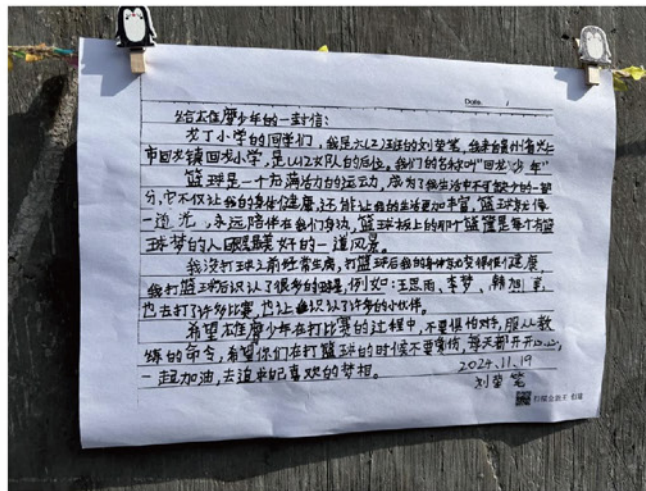 Date. /
给雄鹰少年的一封信:
龙丁小学的同学们,我是六(2)班的刘荣笔,我来自贵州省兴仁
市回龙镇回龙小学,是U12女队的后位。我们的名称叫"回龙少年"
篮球是一个充满活力的运动,成为了我生活中不可缺少的一部
分,它不仅让我的身体健康,还能让我的生活更加丰富,篮球就像
一道光,永远陪伴在我们身边,篮球板上的那个篮筐是每个有篮
球梦的人眼里最美好的一道风景。
我没打球之前经常生病,打篮球后我的身体变得很健康,
我打篮球后识认了很多的球星,例如:王思雨、李梦、韩旭等,
也去打了许多比赛,也让我识认了许多的小伙伴。
希望雄鹰少年在打比赛的过程中,不要惧怕对手,服从教
练的命令,希望你们在打篮球的时候不要受伤,每天都开开心心,
一起加油,去追求自己喜欢的梦想。
2024.11.19
刘荣笔
扫描全能王 创建